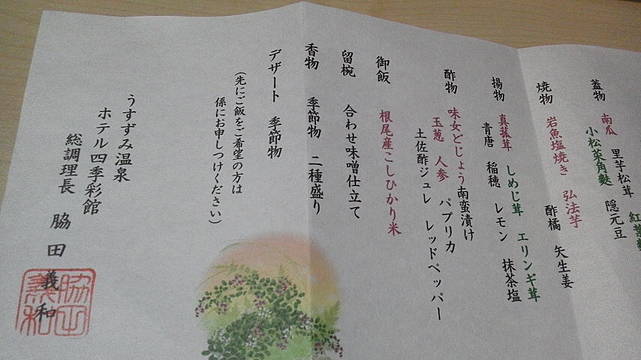 蓋物 南瓜 里芋松茸 紅葉
小松菜角麩 隠元豆
焼物 岩魚塩焼き 弘法芋
酢橘 矢生姜
揚物 真菰茸 しめじ茸 エリンギ茸
青唐 稲穂 レモン 抹茶塩
酢物 味女どじょう南蛮漬け
玉葱 人参 パプリカ
土佐酢ジュレ レッドペッパー
御飯 根尾産こしひかり米
留椀 合わせ味噌仕立て
香物 季節物 二種盛り
デザート 季節物
(先にご飯をご希望の方は
係にお申しつけください)
うすずみ温泉
ホテル四季彩館
総調理長 脇田義和